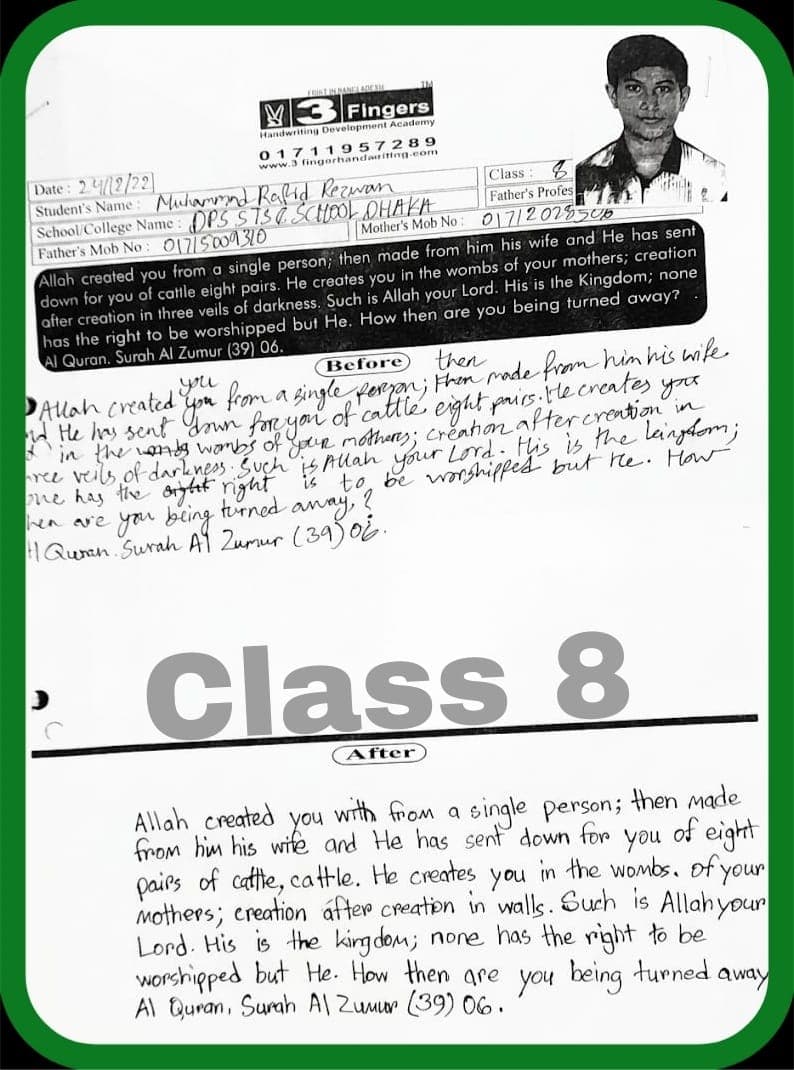 FIRST IN BANGLADESH
TM
3 Fingers
Handwriting Development Academy
01711957289
www.3fingerhandwriting.com
Date : 24/12/22
Class : 8
Student's Name : Muhammad Rafid Rezwan
Father's Profes
School/College Name : DPS STS SCHOOL DHAKA
Father's Mob No : 01715009310
Mother's Mob No :
Allah created you from a single person; then made from him his wife and He has sent
down for you of cattle eight pairs. He creates you in the wombs of your mothers; creation
after creation in three veils of darkness. Such is Allah your Lord. His is the Kingdom; none
has the right to be worshipped but He. How then are you being turned away?
Al Quran. Surah Al Zumur (39) 06.
Before
you then
Allah created you from a single person; then made from him his wife
He has sent down for you of cattle eight pairs. He creates you
in the wombs of your mothers; creation after creation in
veils of darkness. Such is Allah your Lord. His is the kingdom;
has the right is to be worshipped but He. How
are you being turned away?
Quran. Surah Al Zumur (39) 06.
Class 8
After
Allah created you with from a single person; then made
from him his wife and He has sent down for you of eight
pairs of cattle, cattle. He creates you in the wombs. of your
Mothers; creation after creation in walls. Such is Allah your
Lord. His is the kingdom; none has the right to be
worshipped but He. How then are you being turned away
Al Quran, Surah Al Zumur (39) 06.